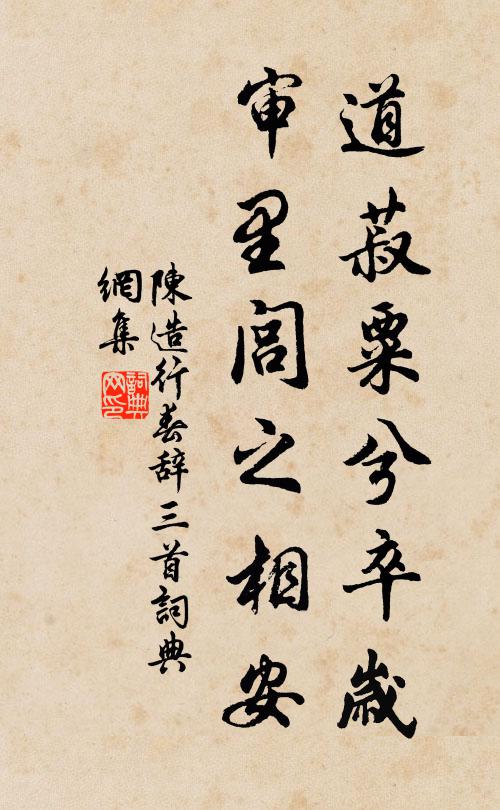 道菽粟兮卒歲
审里闾之相安
陳造行春辞三首詞典
網集
詞典网印